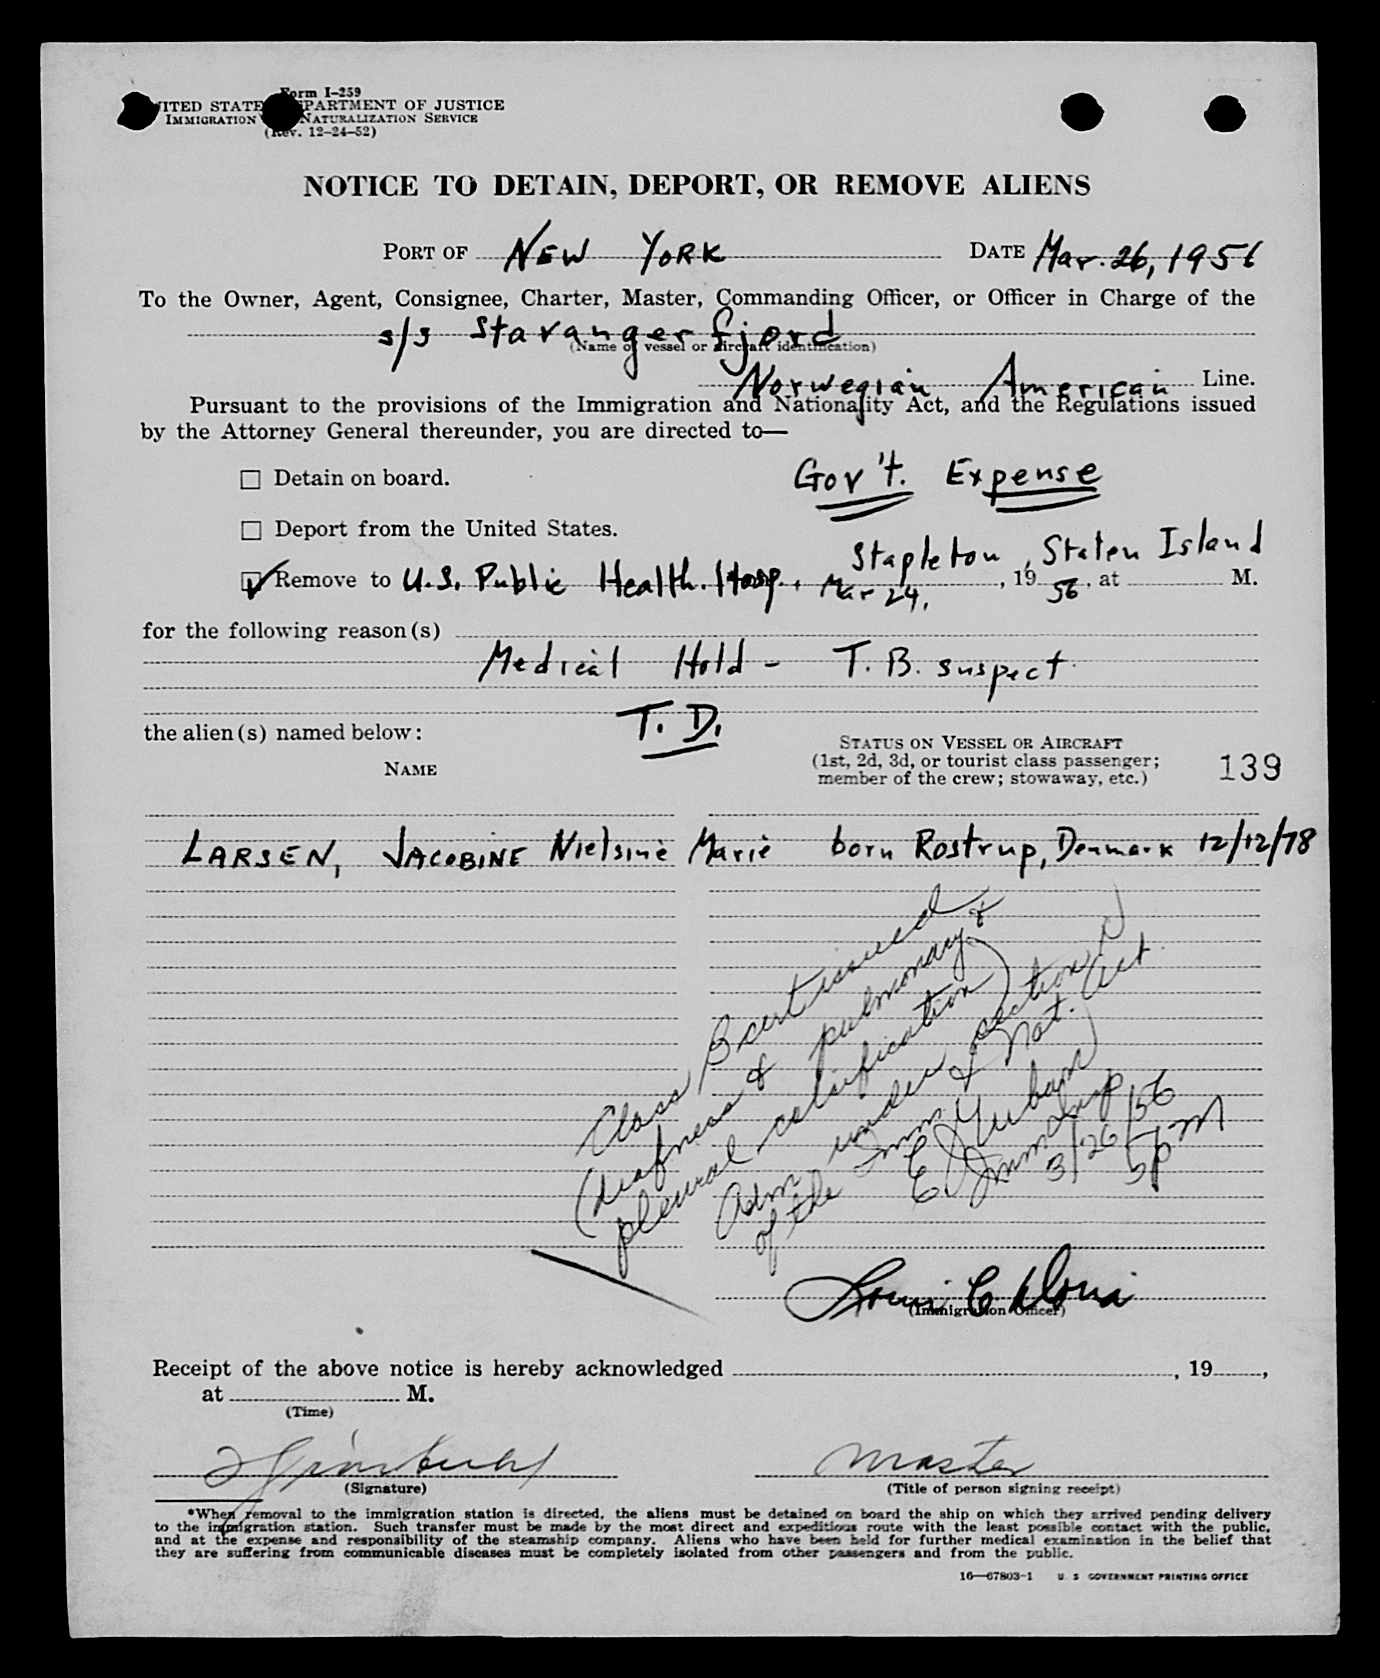 Form I-259
UNITED STATES DEPARTMENT OF JUSTICE
IMMIGRATION NATURALIZATION SERVICE
(Rev. 12-24-52)
NOTICE TO DETAIN, DEPORT, OR REMOVE ALIENS
PORT OF NEW YORK DATE Mar. 26, 1956
To the Owner, Agent, Consignee, Charter, Master, Commanding Officer, or Officer in Charge of the
s/s Stavangerfjord
(Name of vessel or aircraft identification)
Norwegian American Line.
Pursuant to the provisions of the Immigration and Nationality Act, and the Regulations issued
by the Attorney General thereunder, you are directed to—
☐ Detain on board.
Gov't. Expense
☐ Deport from the United States.
Stapleton, Staten Island
☑ Remove to U.S. Public Health. Hosp., Mar 24, , 19 56, at M.
for the following reason(s)
Medical Hold - T.B. suspect
T.D.
the alien(s) named below:
NAME
STATUS ON VESSEL OR AIRCRAFT
(1st, 2d, 3d, or tourist class passenger;
member of the crew; stowaway, etc.)
139
LARSEN, JACOBINE Nielsine Marie born Rostrup, Denmark 12/12/78
Class B cert issued
(deafness & pulmonary &
pleural calcification)
Adm under section
of the Imm & Nat. Act
Imm Insp
3/26/56
5 PM
Louis C
(Immigration Officer)
Receipt of the above notice is hereby acknowledged , 19 ,
at M.
(Time)
Master
(Signature)
(Title of person signing receipt)
*When removal to the immigration station is directed, the aliens must be detained on board the ship on which they arrived pending delivery
to the immigration station. Such transfer must be made by the most direct and expeditious route with the least possible contact with the public,
and at the expense and responsibility of the steamship company. Aliens who have been held for further medical examination in the belief that
they are suffering from communicable diseases must be completely isolated from other passengers and from the public.
16—67803-1 U S GOVERNMENT PRINTING OFFICE